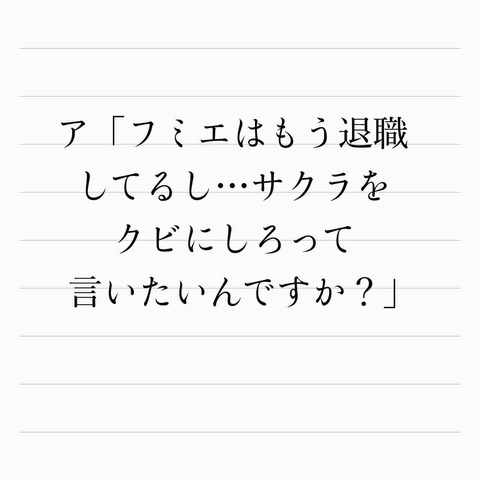 ア「フミエはもう退職
してるし…サクラを
クビにしろって
言いたいんですか？」